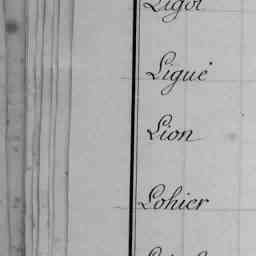 Ligot
Ligué
Lion
Lohier